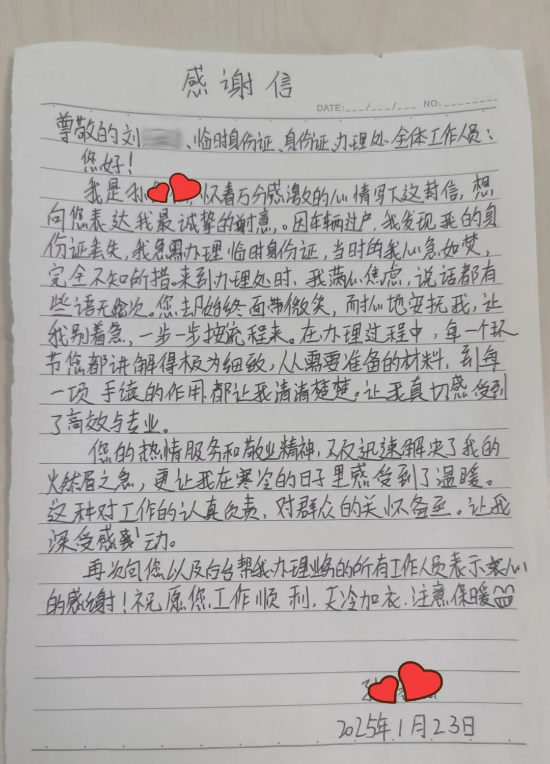 感谢信
DATE: ___/___/___ NO:
尊敬的刘 、临时身份证、身份证办理处全体工作人员：
您好！
我是孙 怀着万分感激的心情写下这封信，想
向您表达我最诚挚的谢意。因车辆过户，我发现我的身
份证丢失，我急需办理临时身份证，当时的我心急如焚，
完全不知所措。来到办理处时，我满心焦虑，说话都有
些语无伦次。您却始终面带微笑，耐心地安抚我，让
我别着急，一步一步按流程来。在办理过程中，每一个环
节您都讲解得极为细致，从需要准备的材料，到每
一项手续的作用都让我清清楚楚。让我真切感受到
了高效与专业。
您的热情服务和敬业精神，不仅迅速解决了我的
燃眉之急，更让我在寒冷的日子里感受到了温暖。
这种对工作的认真负责，对群众的关怀备至。让我
深受感动。
再次向您以及后台帮我办理业务的所有工作人员表示衷心
的感谢！祝愿您工作顺利，天冷加衣，注意保暖
2025年1月23日